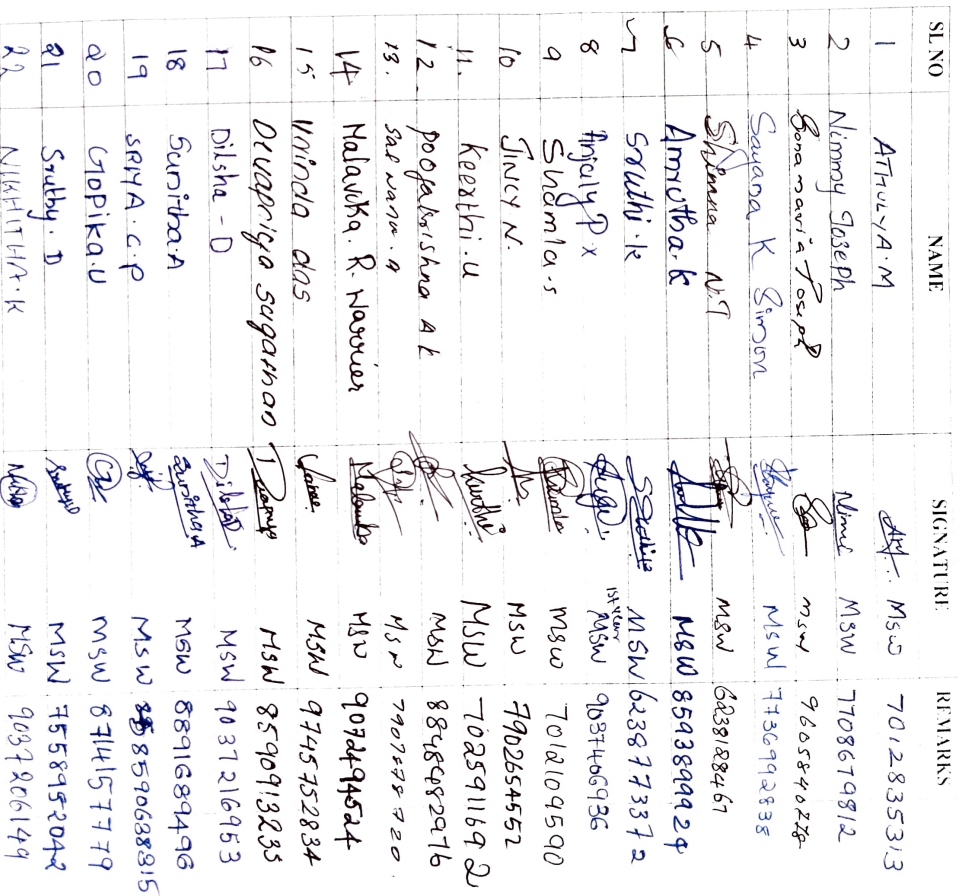 SL.NO NAME SIGNATURE REMARKS
1 ATHULYA.M MSW 7012835313
2 Nimmy Joseph Nimmi MSW 7708679812
3 Sonamaria Joseph MSW 9605840278
4 Sayana K Simson MSW 7736992838
5 Shimna N.T MSW 6238188467
6 Amrutha.k MSW 8593899929
7 Sruthi.k MSW 6238773372
8 Anjaly P x 1st year MSW 9037406936
9 Shamla.s MSW 7012109590
10 JINCY N. MSW 7902654557
11. Keerthi.u MSW 7025911692
12 Poojakrishna A k MSW 8848982976
13. MSW 7907878720.
14 Malavika. R. Warrier MSW 9072494524
15 Vrinda das MSW 9745752834
16 Devapriya sugathan MSW 8590913235
17 Dilsha - D Dilsha D. MSW 9037216953
18 Sunitha.A Sunitha A MSW 8891689496
19 SRIYA.C.P MSW 8590688815
20 GOPIKA.U MSW 8714157779
21 Sruthy.D MSW 7558952042
22 NIKHITHA.K MSW 9037206149